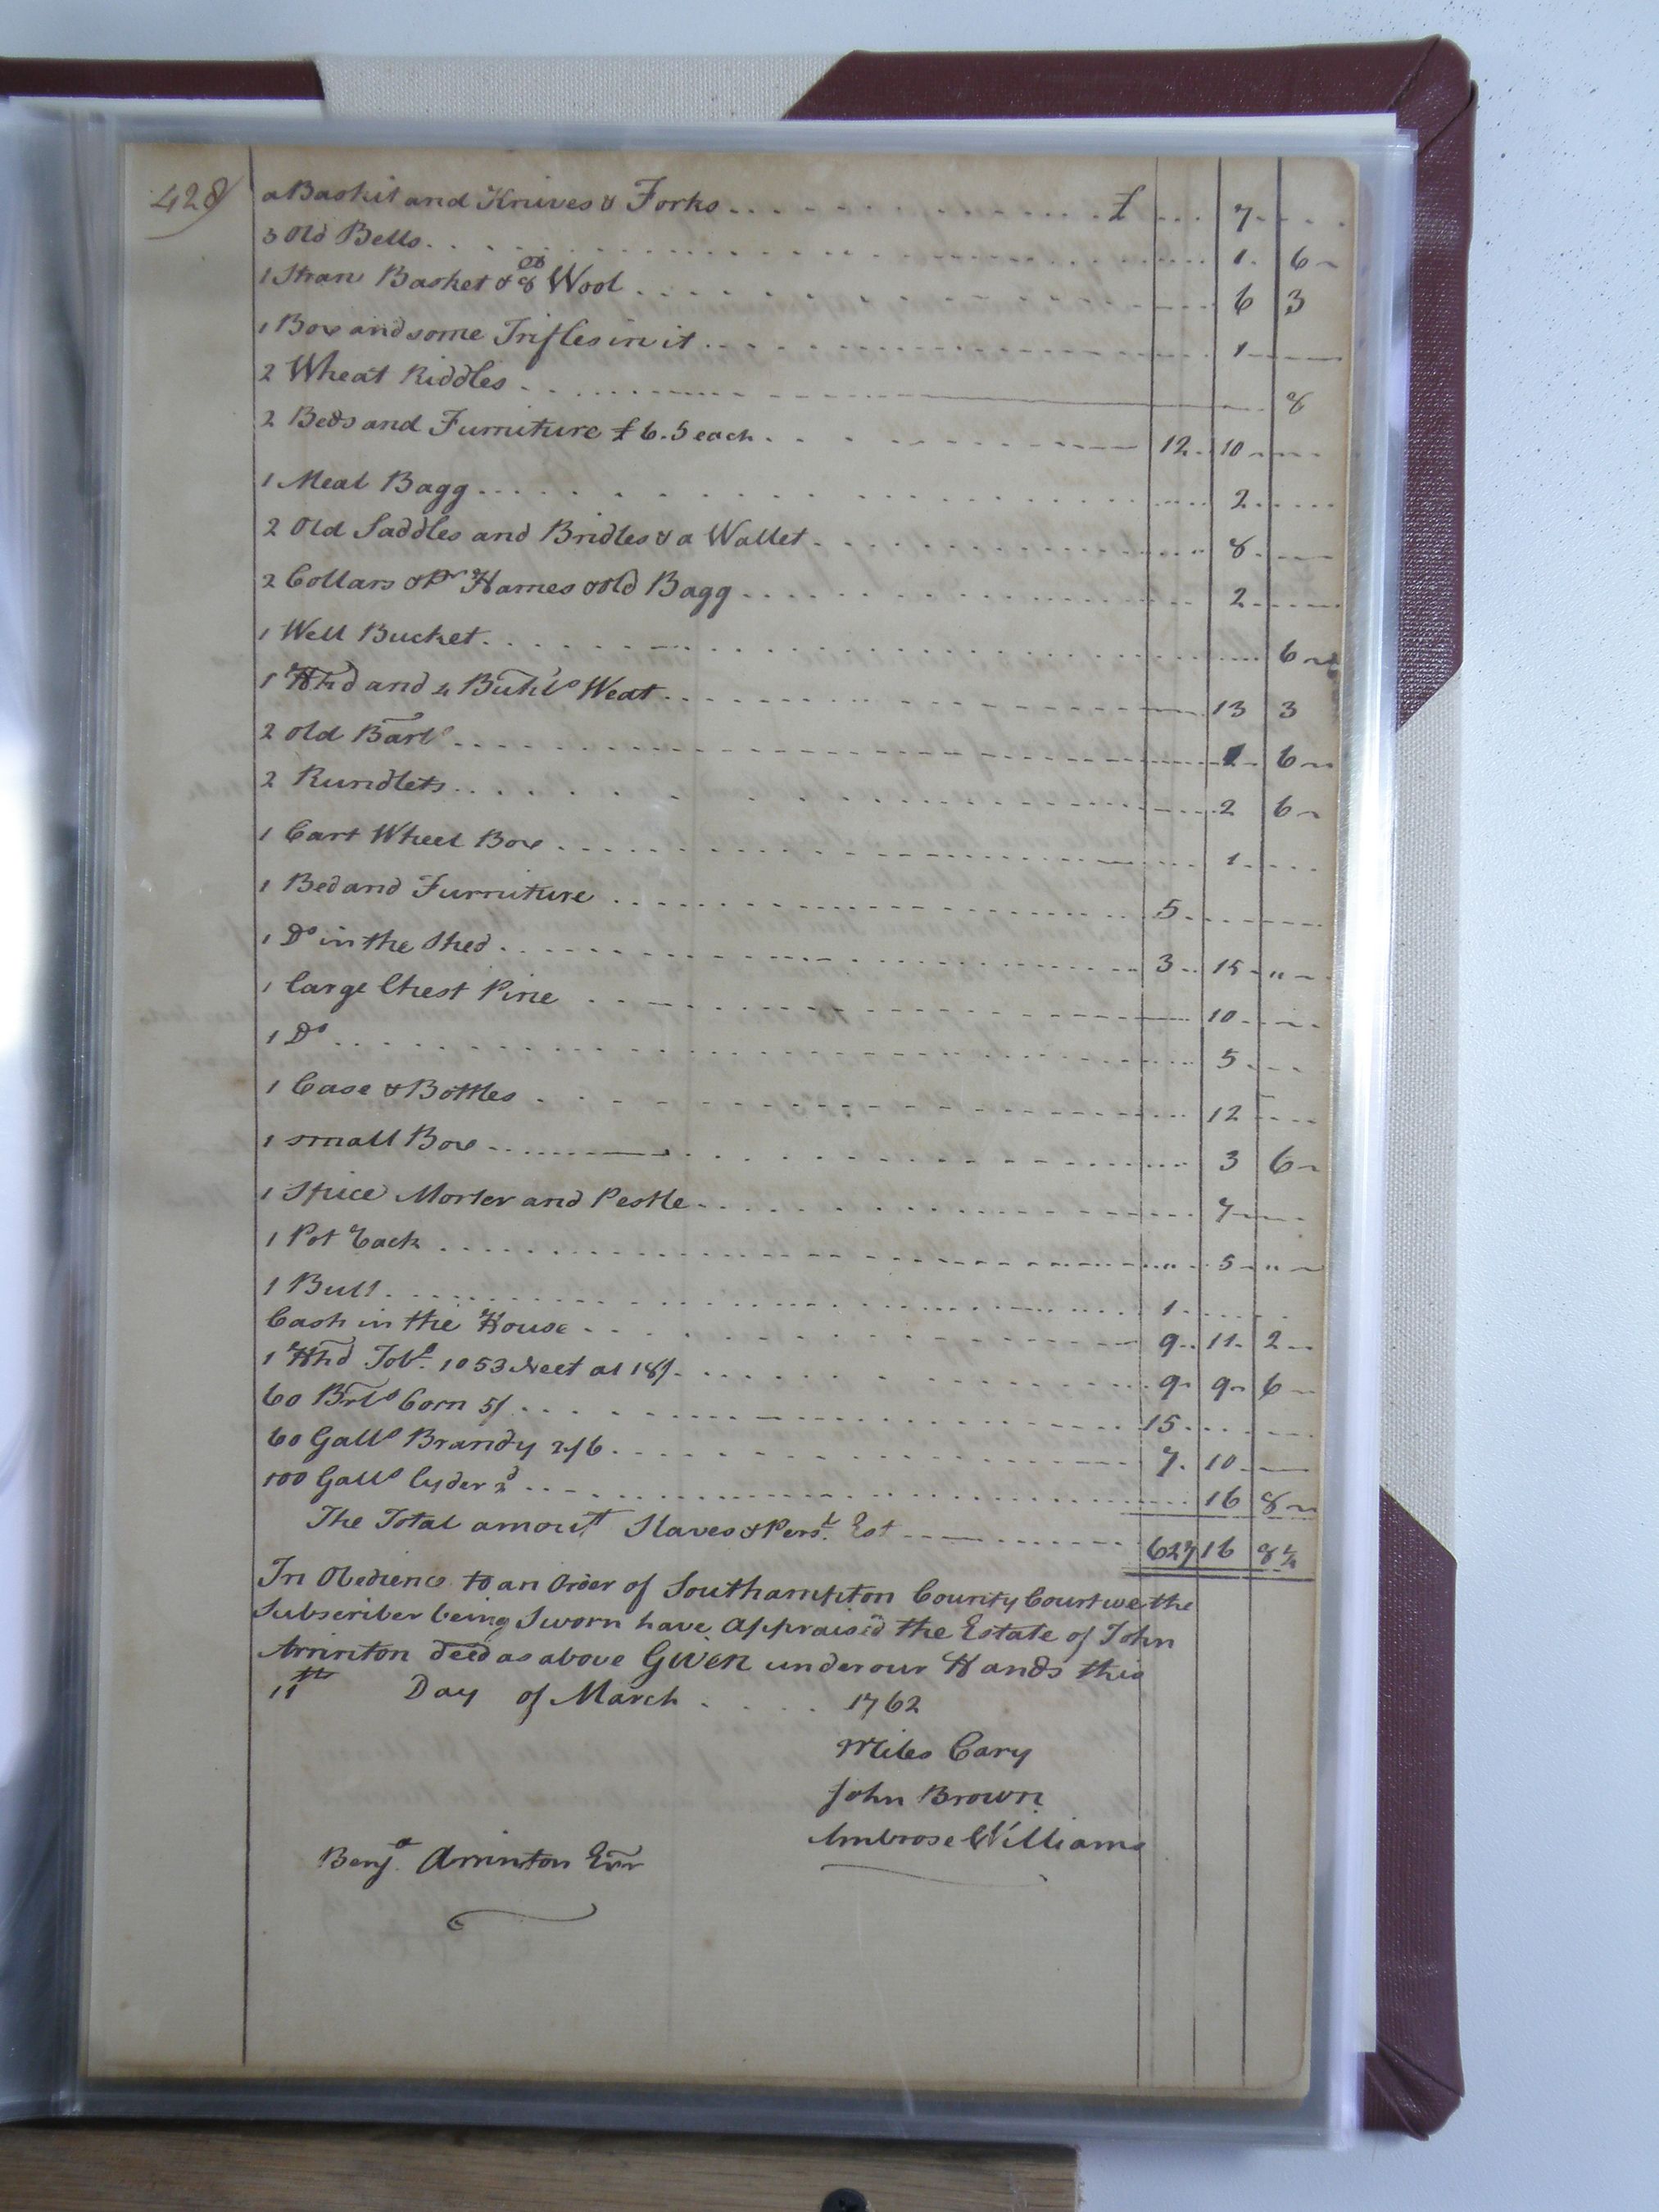 428
a Baskit and Knives & Forks £ 7
3 Old Bells 1 6
1 Straw Basket & 8 lb Wool 6 3
1 Box and some Trifles in it 1
2 Wheat Riddles 8
2 Beds and Furniture £6.5 each 12 10
1 Meal Bagg 2
2 Old Saddles and Bridles & a Wallet 8
2 Collars & Pr Hames & old Bagg 2
1 Well Bucket 6
1 Hhd and 4 Bushls Weat 13 3
2 old Barls 6
2 Rundlets 2 6
1 Cart Wheel Box 1
1 Bed and Furniture 5
1 Do in the Shed 3 15 "
1 large Chest Pine 10
1 Do 5
1 Case & Bottles 12
1 small Box 3 6
1 Spice Morter and Pestle 7
1 Pot Rack " 5 "
1 Bull 1
Cash in the House 9 11 2
1 Hhd Tobo. 1053 Neet at 18/ 9 9 6
60 Brls Corn 5/ 15
60 Galls Brandy 2/6 7 10
100 Galls Cyder 2d 16 8
The Total amount Slaves & Persl. Est 627 16 8
In Obedience to an Order of Southampton County Court we the
Subscriber being Sworn have Appraised the Estate of John
Arrinton deced as above Given under our Hands this
11th Day of March 1762
Miles Cary
John Brown
Ambrose Williams
Benja. Arrinton Exr